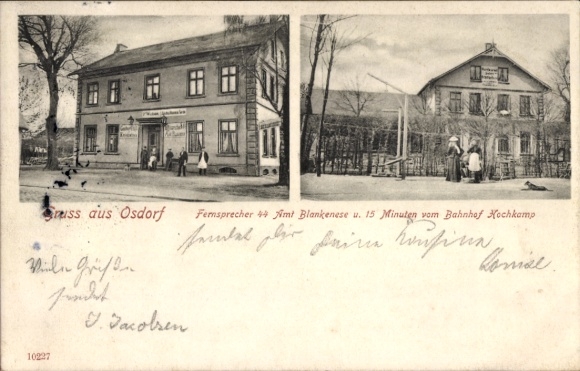 Gruss aus Osdorf
Fernsprecher 44 Amt Blankenese u. 15 Minuten vom Bahnhof Hochkamp
sendet dir Deine Cousine
Viele Grüße
sendet
J. Jacobsen
10227